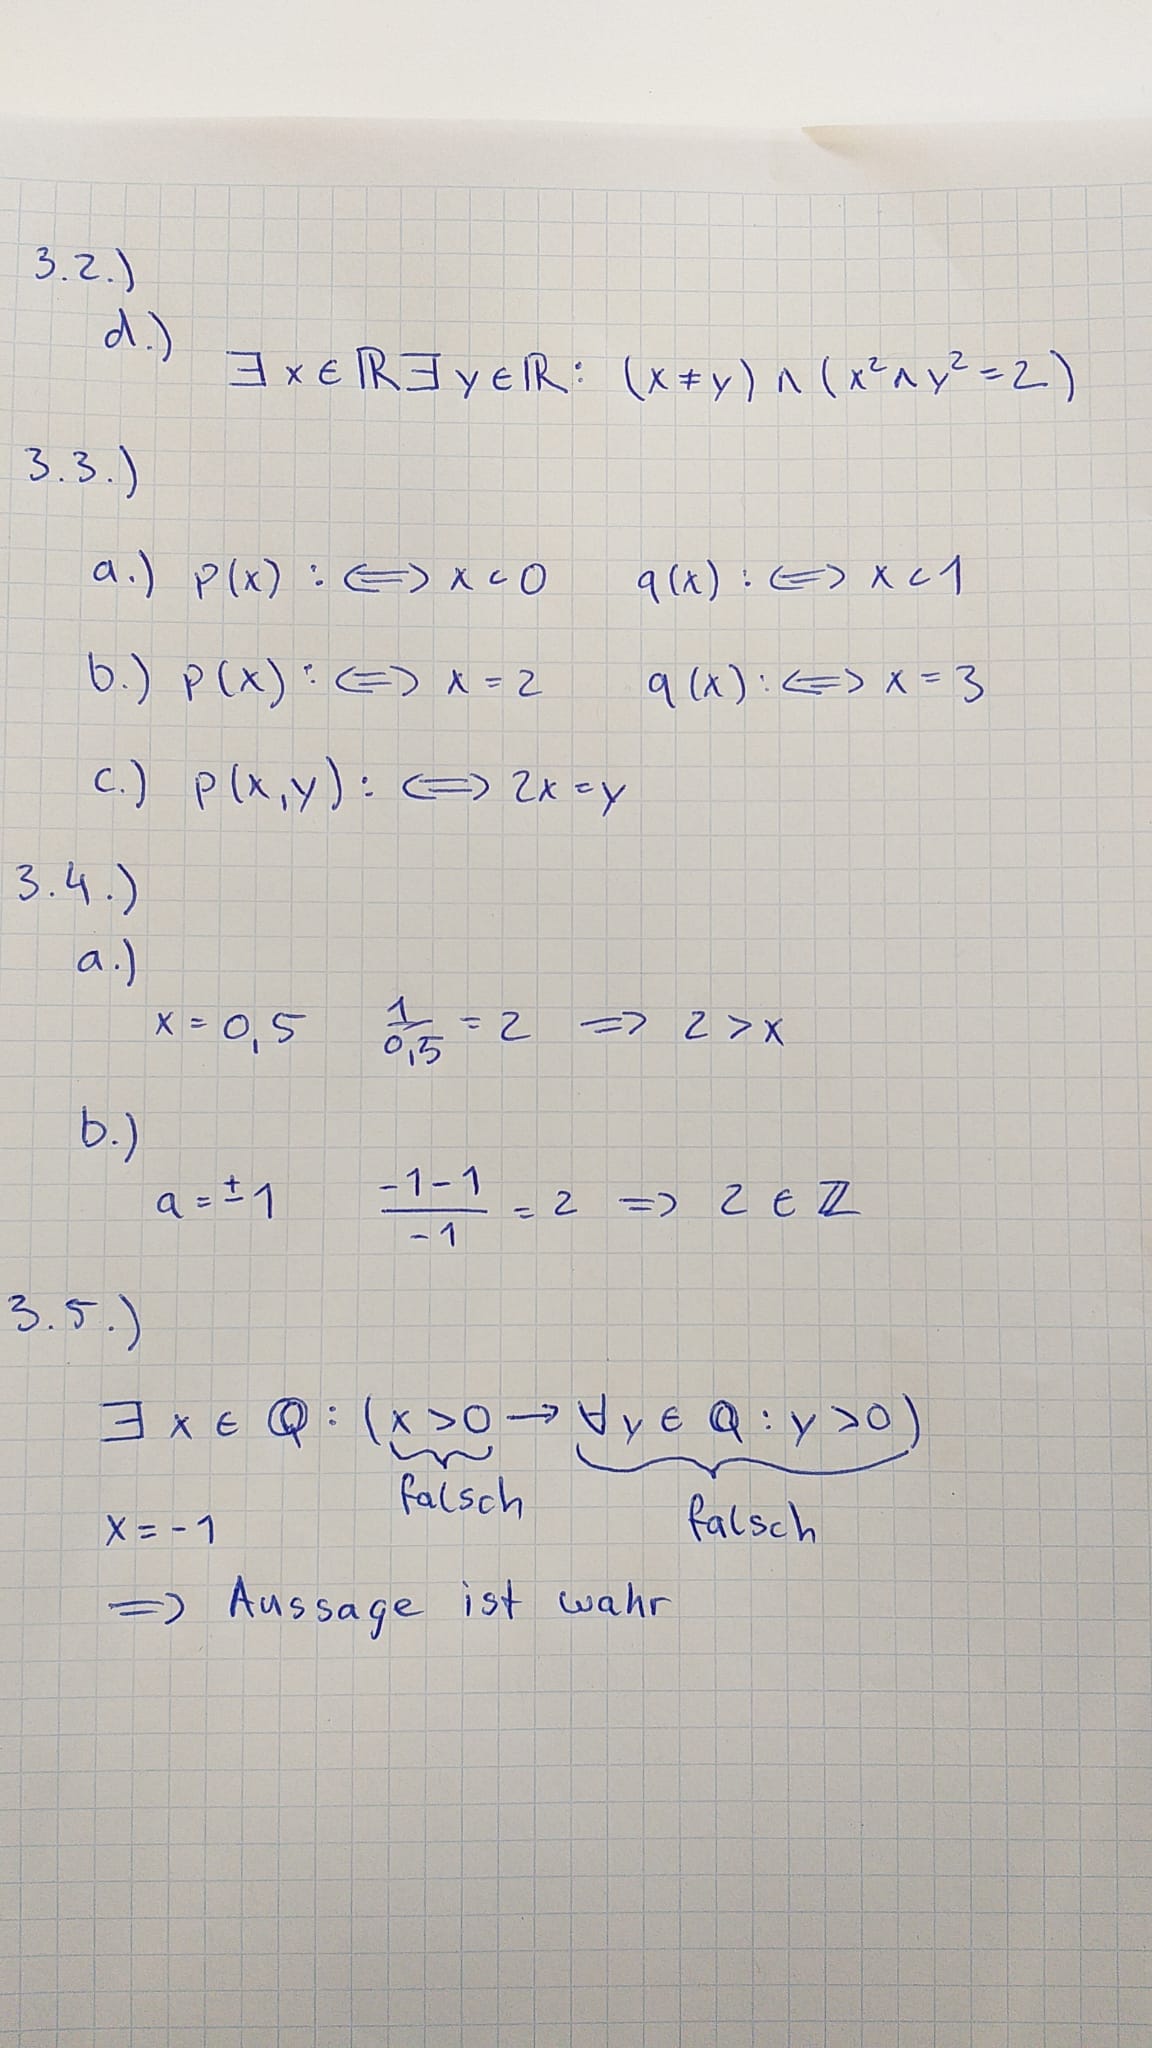 3.2.)
d.)
∃ x ∈ ℝ ∃ y ∈ ℝ: (x ≠ y) ∧ (x² ∧ y² = 2)
3.3.)
a.) p(x) :⟺ x < 0 q(x) :⟺ x < 1
b.) p(x) :⟺ x = 2 q(x) :⟺ x = 3
c.) p(x,y) :⟺ 2x = y
3.4.)
a.)
x = 0,5 1/0,5 = 2 ⇒ 2 > x
b.)
a = ±1 (-1-1)/-1 = 2 ⇒ 2 ∈ ℤ
3.5.)
∃ x ∈ ℚ : (x > 0 → ∀ y ∈ ℚ : y > 0)
falsch falsch
x = -1
⇒ Aussage ist wahr